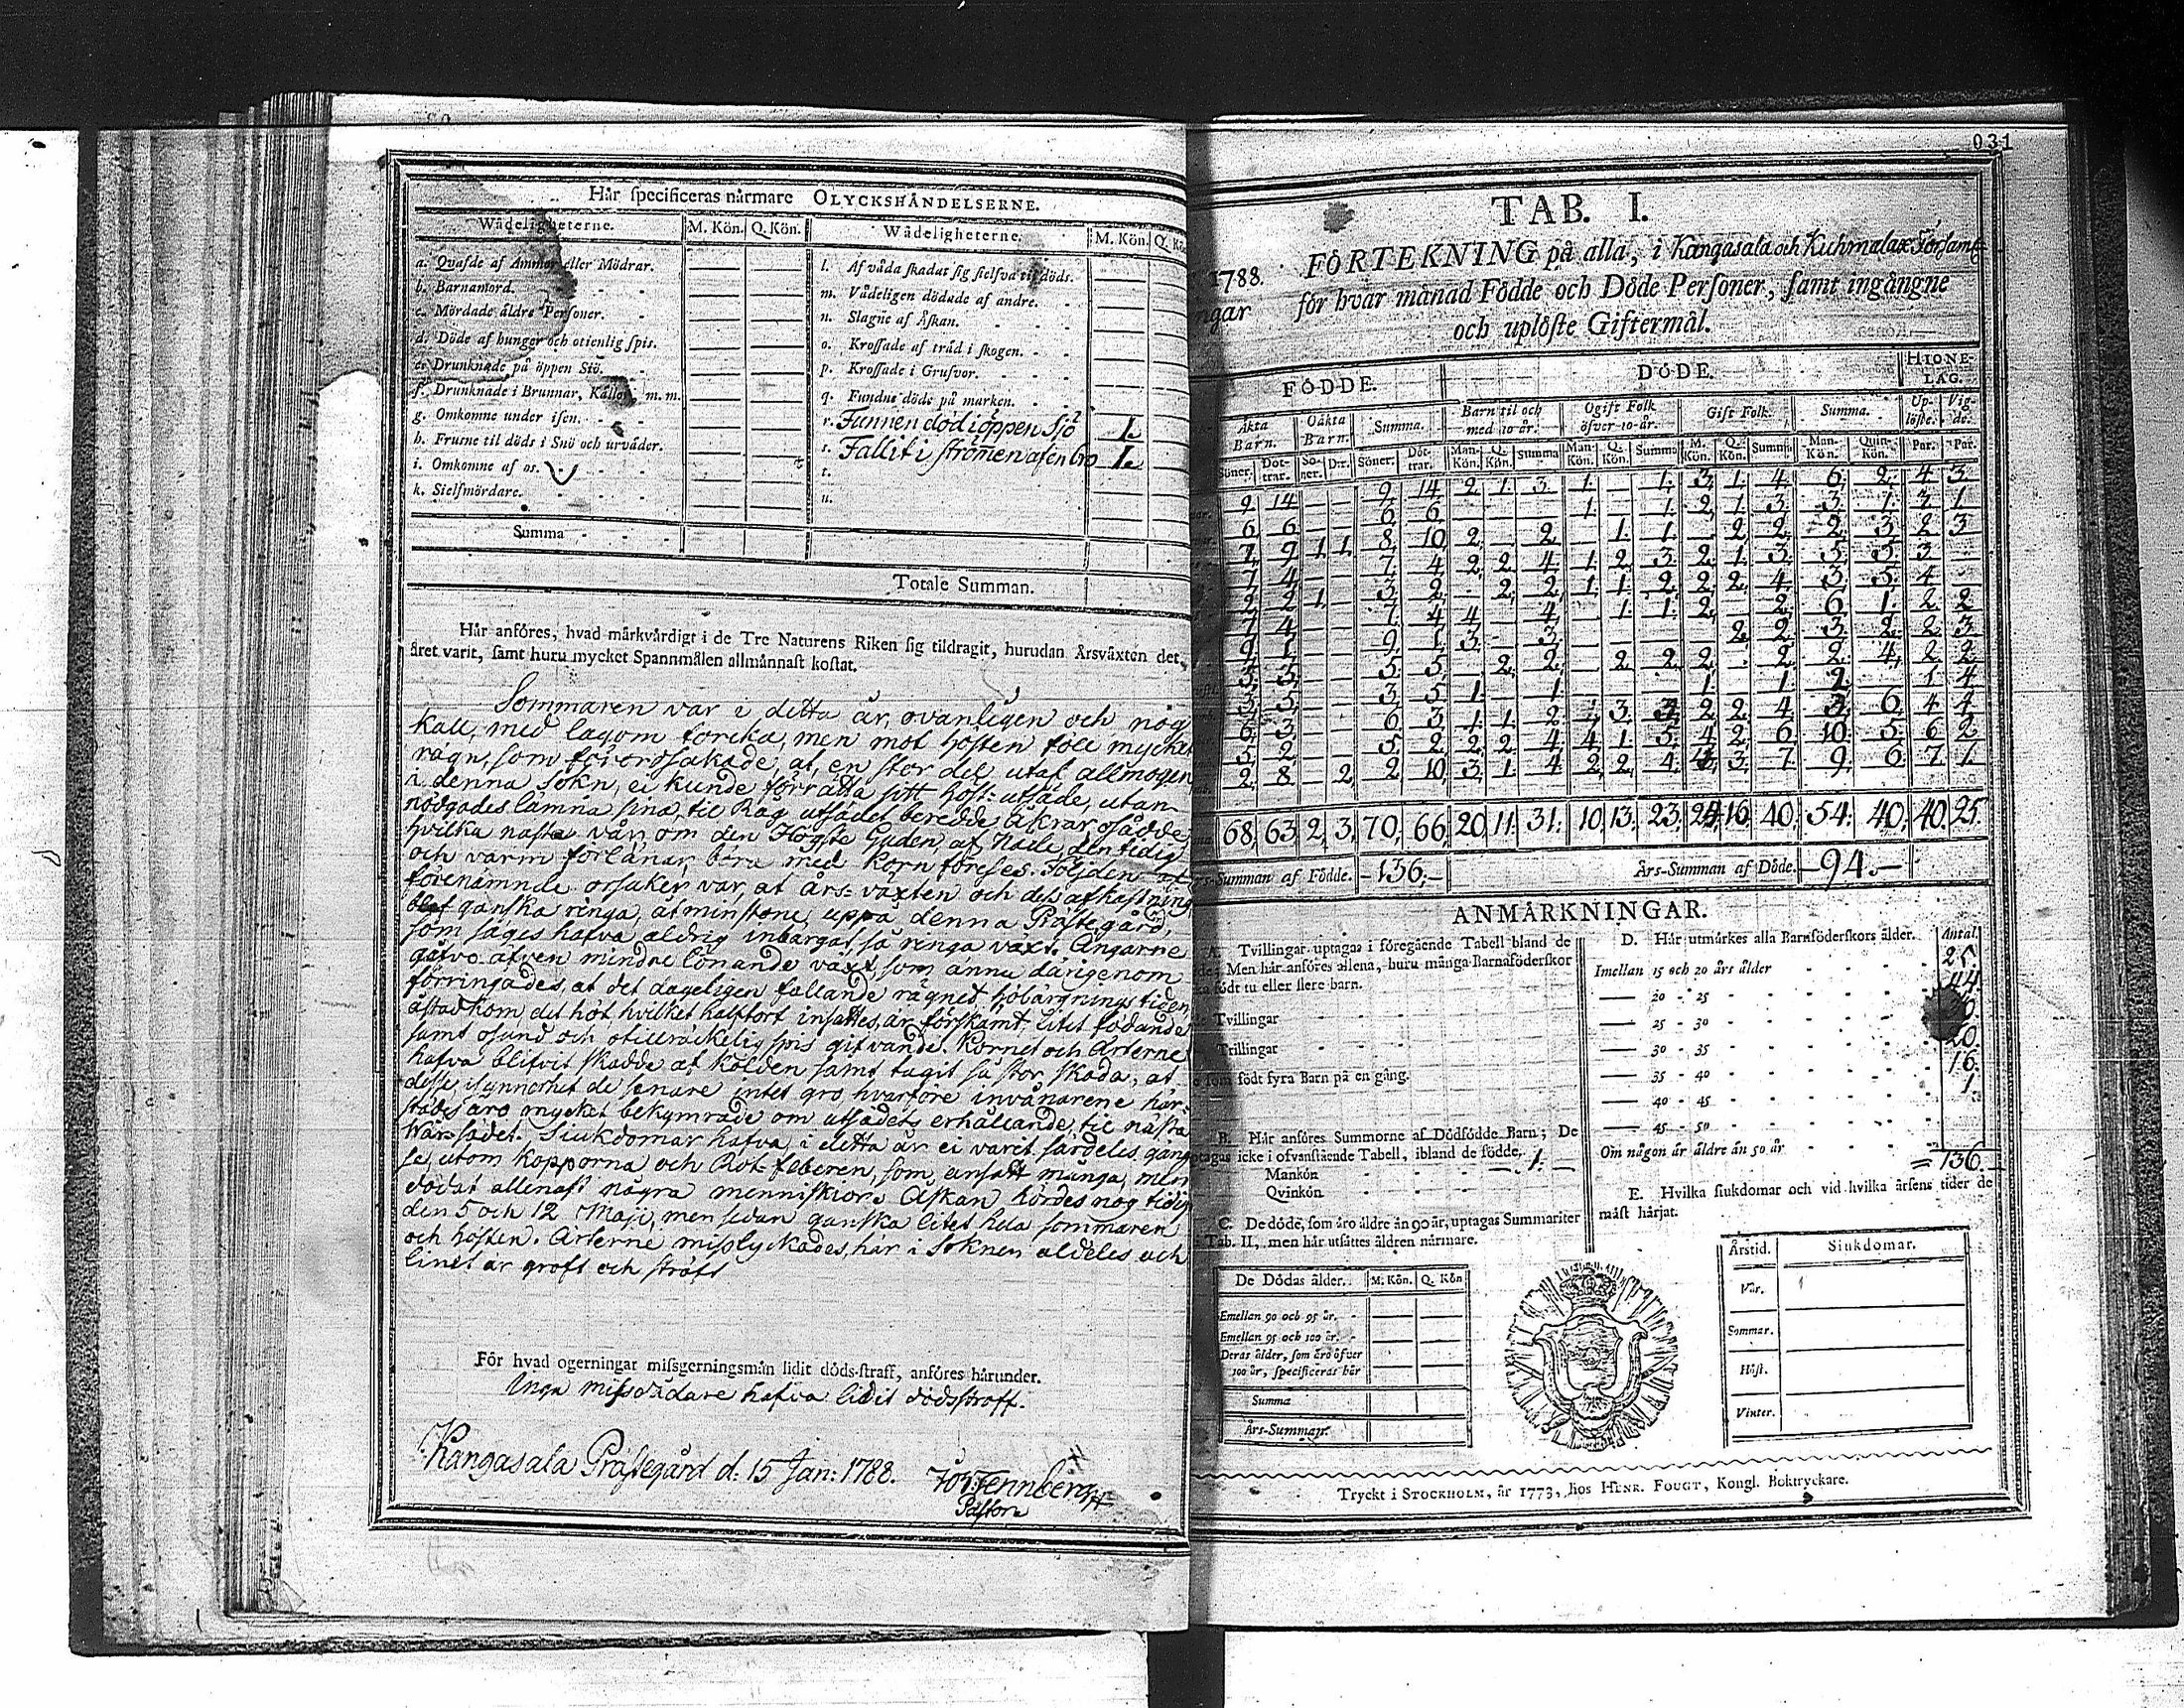 Här specificeras närmare OLYCKSHÄNDELSERNE.
Wådeligheterne. M. Kön. Q. Kön. Wådeligheterne. M. Kön. Q. Kö
a. Qvafde af Ammor eller Mödrar.
b. Barnamord.
c. Mördade äldre Personer.
d. Döde af hunger och otienlig spis.
e. Drunknade på öppen Siö.
f. Drunknade i Brunnar, Källor, m. m.
g. Omkomne under isen.
h. Frusne til döds i Snö och urväder.
i. Omkomne af os.
k. Sielfmördare.
Summa
l. Af våda skadat sig sielfva til döds.
m. Vådeligen dödade af andre.
n. Slagne af Åskan.
o. Krossade af träd i skogen.
p. Krossade i Grufvor.
q. Fundne döde på marken.
r. Funnen död i öppen Sjö 1.
s. Fallit i strömen af en bro 1.
t.
u.
Totale Summan.
Här anföres, hvad märkvärdigt i de Tre Naturens Riken sig tildragit, hurudan Årsväxten det
året varit, samt huru mycket Spannmålen allmännast kostat.
Sommaren var i detta år, ovanligen och nog
kall, med lagom torcka, men mot hösten föll mycket
rägn, som förorssakade, at, en stor del utaf allmogen
i denna sokn, ei kunde förrätta sitt höst-utsäde, utan
nödgades lämna sina, til Råg utsädet beredde åkrar osådde
hvilka nästa vår, om den Högste Guden af Nåde, den tidig
och varm förlänar, böra med Korn föreses. Följden af
förenämnde orsaker var, at års-växten och dess afkastning
blef ganska ringa, åtminstone uppå denna Prästegård,
som säges hafva aldrig inbärgat så ringa växt. Ängarne
gåfvo äfven mindre lönande växt, som ännu därigenom
förringades, at det dageligen fallande rägnet höbärgnings tiden
åstadkom, det höt, hvilket halftort insattes, är förskämt, litet födande
samt osund och otilräckelig spis gifvande. Kornet och Ärterne
hafva blifvit skadde af kölden samt tagit så stor skada, at
desse, isynnerhet de senare intet gro, hvarföre invånarene här-
städes äro mycket bekymrade om utsädets erhållande til nästa
Wårsädet. Siukdomar hafva i detta år ei varit särdeles gäng
se, utom Kopporna och Röt-feberen, som ansatt många, men
dödat allenast några menniskior. Åskan hördes nog tidigt
den 5 och 12 Maji, men sedan ganska litet hela sommaren
och hösten. Ärterne misslyckades här i Soknen aldeles och
linet är groft och sträft
För hvad ogerningar missgerningsmän lidit döds-straff, anföres härunder.
Inga missdådare hafva lidit dödsstraff.
Kangasala Prästegård d: 15 Jan: 1788.
Pastor
031
TAB. I.
1788. FÖRTEKNING på alla, i Kangasala och Kuhmalax Församl
ngar för hvar månad Födde och Döde Personer, samt ingångne
och uplöste Giftermål.
FÖDDE. DÖDE. HIONE-LAG.
Äkta Barn. Oäkta Barn. Summa. Barn til och med 10 år. Ogift Folk öfver 10 år. Gift Folk. Summa. Up-löste. Vig-de.
Söner. Döt-trar. Sö-ner. Dtr. Söner. Döt-trar. Man-Kön. Q. Kön. Summa Man-Kön. Q. Kön. Summa M. Kön. Q. Kön. Summa Man-Kön. Quin-Kön. Par. Par.
9 14 — — 9. 14. 2. 1. 3. 1. — 1. 3. 1. 4. 6. 2. 4. 3.
6 6 — — 6 6 — — — 1. — 1. 2. 1. 3. 3. 1. 3. 1
7 9 1 1 8 10 2 — 2 — 1. 1. — 2. 2. 2. 3. 2 3
7 4 — — 7 4 2 2 4 1. 2. 3. 2. 1. 3. 5. 5. 3 —
2 2 1 — 3 2 — 2 2 1. 1. 2. 2. 2. 4. 3. 5. 4 —
7 4 — — 7. 4 4 — 4 — 1. 1. 2. — 2. 6. 1. 2. 2
9 1 — — 9 1. 3 — 3 — — — — 2. 2. 3. 2. 2 3
5 5 — — 5. 5. — 2. 2. — 2. 2. 2. — 2. 2. 4. 2. 2.
3 5 — — 3. 5 1. — 1. — — — 1. — 1. 2. — 1 4
6 3 — — 6 3 1. 1. 2 3. 2. 2. 4. 6. 4 4
5 2 — — 5. 2. 2. 2. 4. 4. 1. 5. 4. 2. 6. 10. 5. 6 2
2 8 — 2 2. 10. 3. 1. 4. 2. 2. 4. 3. 7. 9. 6. 7 1.
68, 63 2, 3, 70, 66, 20, 11. 31. 10, 13. 23, 24 16. 40, 54. 40, 40. 25.
rs-Summan af Födde. —136.— Års-Summan af Döde. —94.—
ANMÄRKNINGAR.
A. Tvillingar uptagas i föregående Tabell bland de
Men här anföres allena, huru många Barnaföderskor
födt tu eller flere barn.
Tvillingar
Trillingar
som födt fyra Barn på en gång.
B. Här anföres Summorne af Dödfödde Barn; De
ptagas icke i ofvanstående Tabell, ibland de födde,
Mankön 1.
Qvinkön
C. De döde, som äro äldre än 90 år, uptagas Summariter
i Tab. II, men här utsättes äldren närmare.
De Dödas ålder. M. Kön. Q. Kön
Emellan 90 och 95 år.
Emellan 95 och 100 år.
Deras ålder, som äro öfver
100 år, specificeras här
Summa
Års-Summan.
D. Här utmärkes alla Barnföderskors ålder. Antal.
Imellan 15 och 20 års ålder 25.
— 20 - 25 44.
— 25 - 30
— 30 - 35 20.
— 35 - 40 16.
— 40 - 45 1.
— 45 - 50
Om någon är äldre än 50 år
= 136.
E. Hvilka siukdomar och vid hvilka årsens tider de
mäst härjat.
Årstid. Siukdomar.
Vår.
Sommar.
Höst.
Vinter.
Tryckt i STOCKHOLM, år 1773, hos HENR. FOUGT, Kongl. Boktryckare.